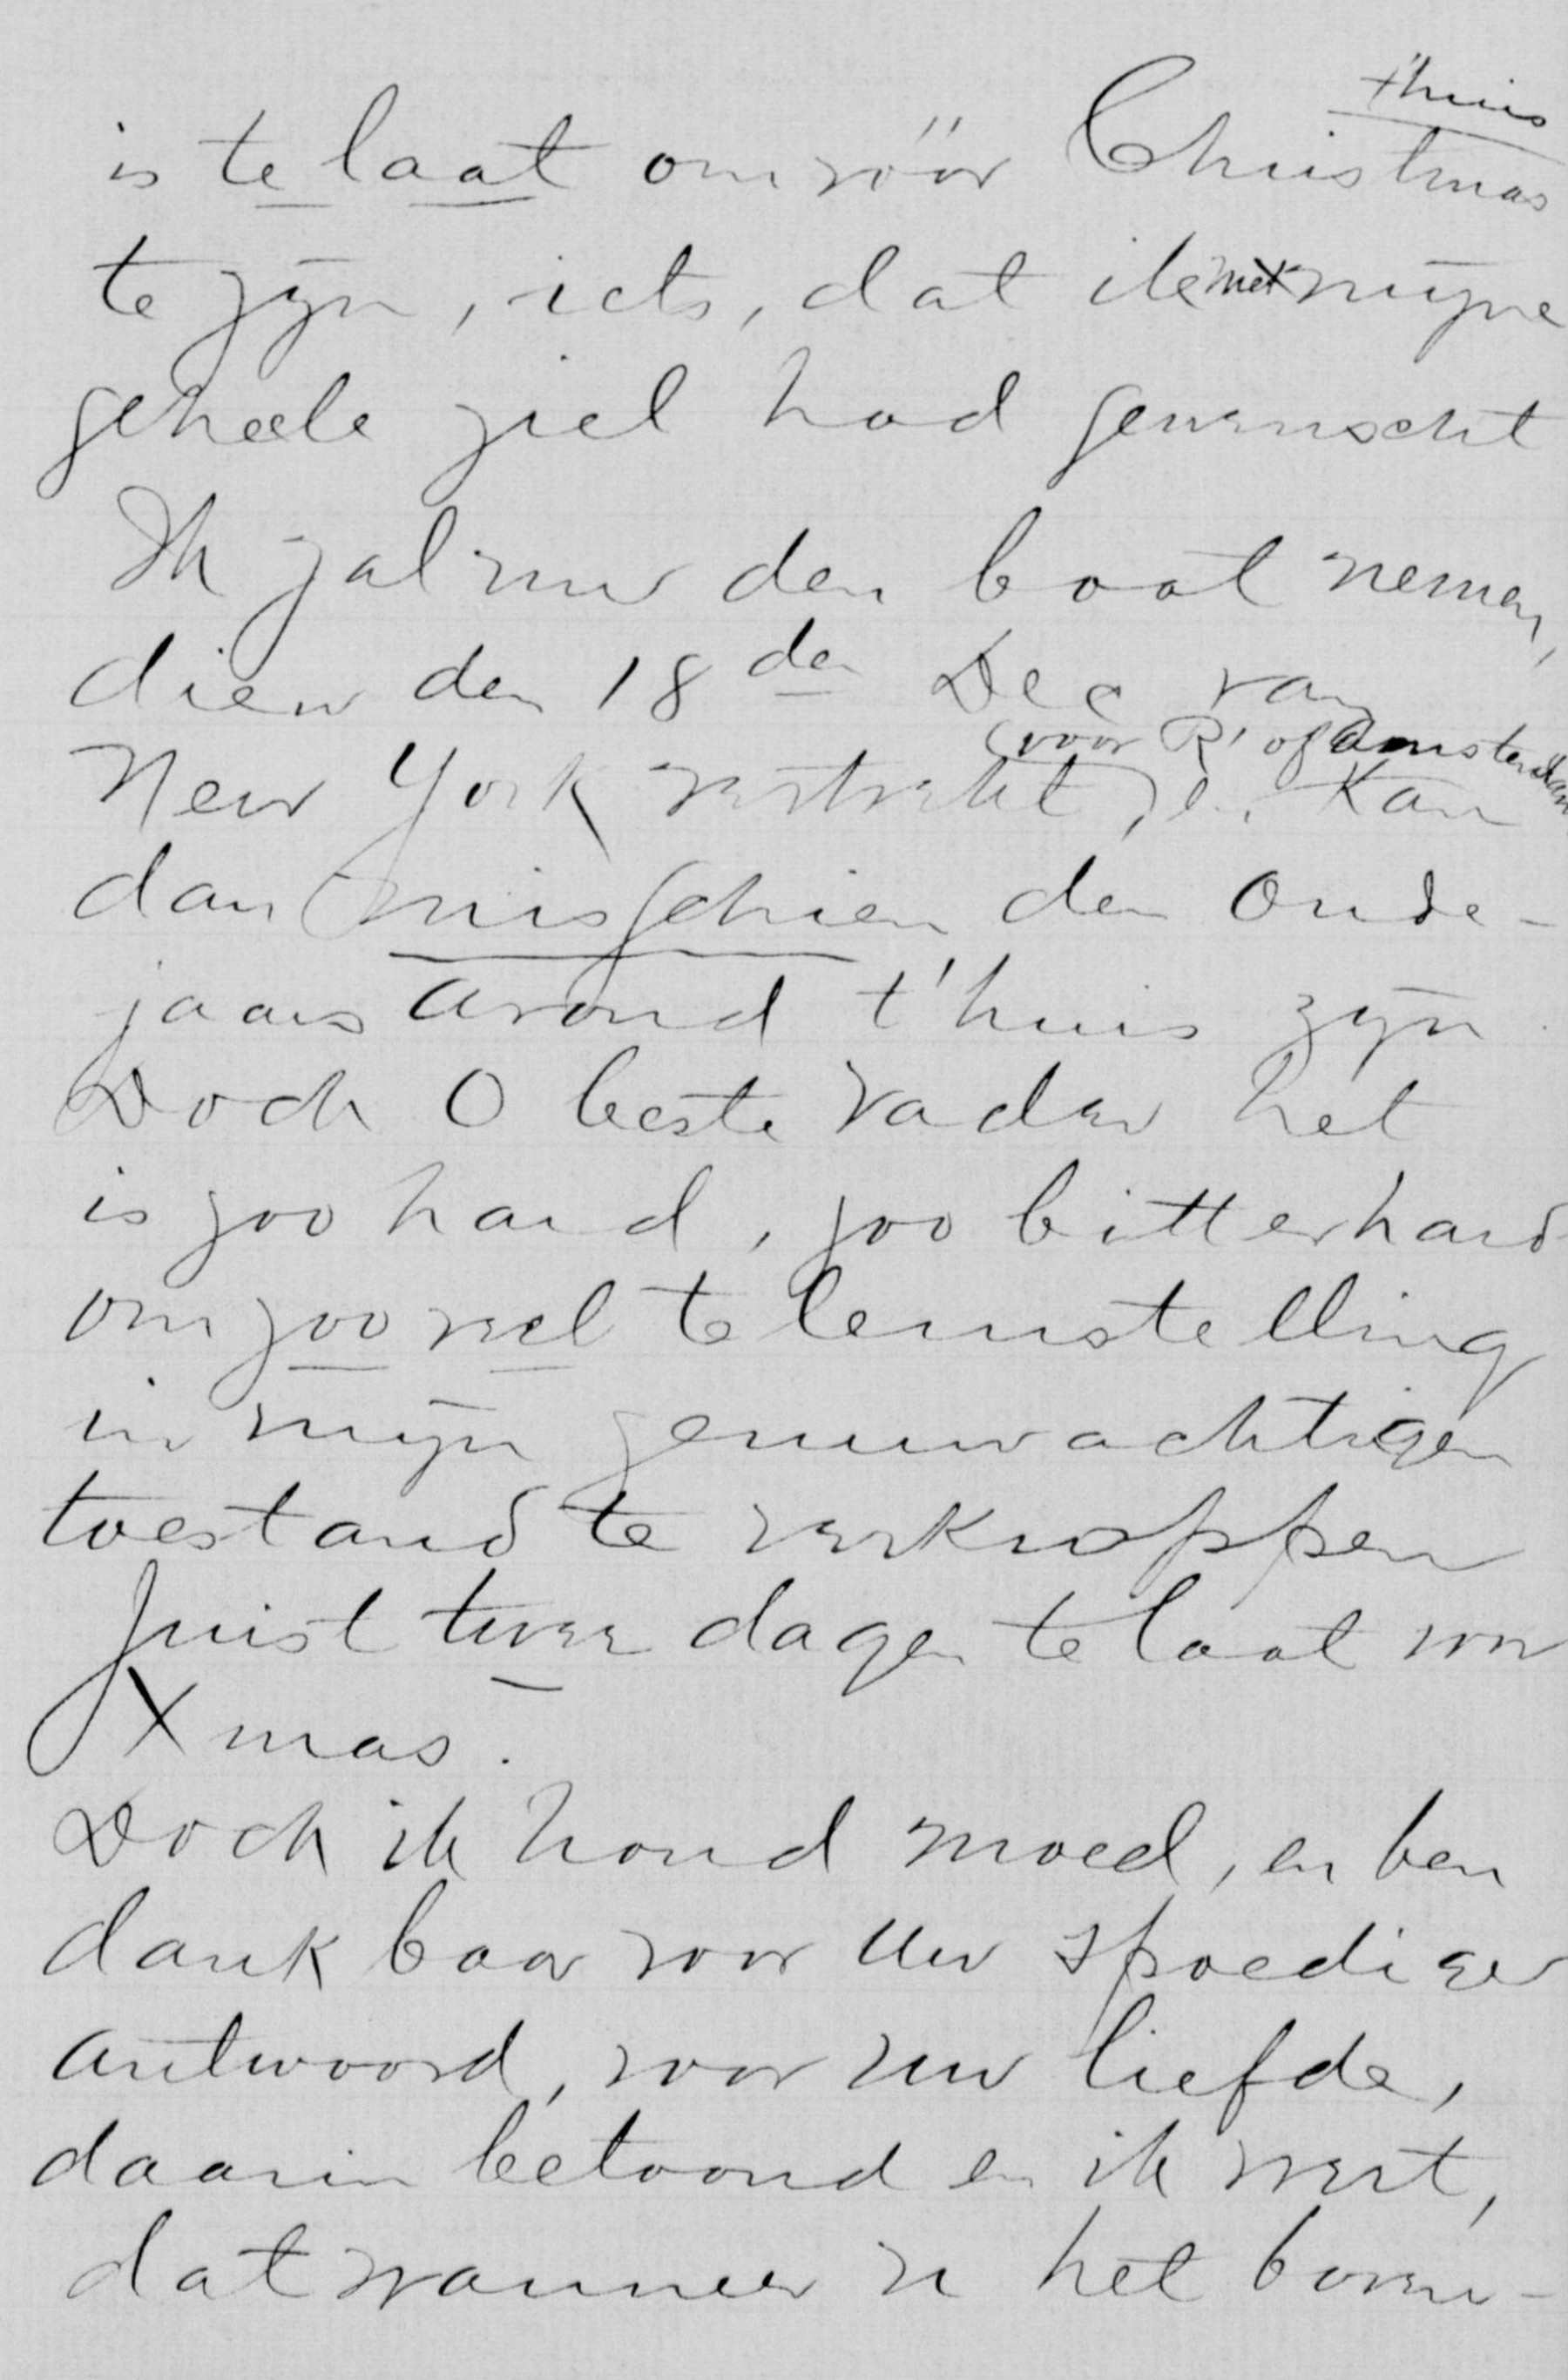 t'huis
is te laat om vóór Christmas
te zijn, iets, dat ik met mijne
geheele ziel had gewenscht
Ik zal nu den boot nemen,
dien den 18den Dec van
(voor R' of Amsterdam
New York vertrekt, en kan
dan misschien den Oude-
jaars avond t'huis zijn.
Doch O beste Vader het
is zoo hard, zoo bitterhard
om zoo veel teleurstelling
in mijn zenuwachtigen
toestand te verkroppen
Juist twee dagen te laat voor
Xmas.
Doch ik houd moed, en ben
dankbaar voor uw spoedig
antwoord, voor uw liefde,
daarin betoond en ik weet,
dat wanneer u het boven-